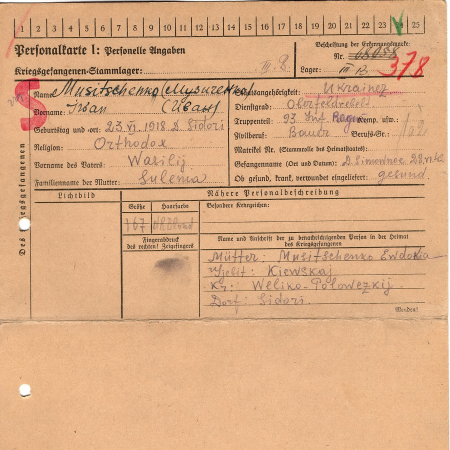 1 2 3 4 5 6 7 8 9 10 11 12 13 14 15 16 17 18 19 20 21 22 23 24 25
Personalkarte I: Personelle Angaben
Beschriftung der Erkennungsmarke:
Nr. 68058
378
Kriegsgefangenen-Stammlager: III B.
Lager: III B
S
Des Kriegsgefangenen
Name: Musitschenko
Staatsangehörigkeit: Ukrainez
Vorname: Iwan (Иван)
Dienstgrad:
Truppenteil: 93 Inf. Reg. Komp. usw.:
Geburtstag und -ort: 23.VI.1918 D. Sidori
Zivilberuf: Bauer Berufs-Gr.:
Religion: Orthodox
Matrikel Nr. (Stammrolle des Heimatstaates):
Vorname des Vaters: Wasilij
Gefangennahme (Ort und Datum):
Familienname der Mutter: Sulema
Ob gesund, krank, verwundet eingeliefert: gesund.
Lichtbild
Nähere Personalbeschreibung
Größe
Haarfarbe
Besondere Kennzeichen:
167
Fingerabdruck
des rechten! Zeigefingers
Name und Anschrift der zu benachrichtigenden Person in der Heimat
des Kriegsgefangenen
Mutter: Musitschenko Ewdokia
Gebit: Kiewskaj
Kr: Weliko-Polowezkij
Dorf: Sidori.
Wenden!